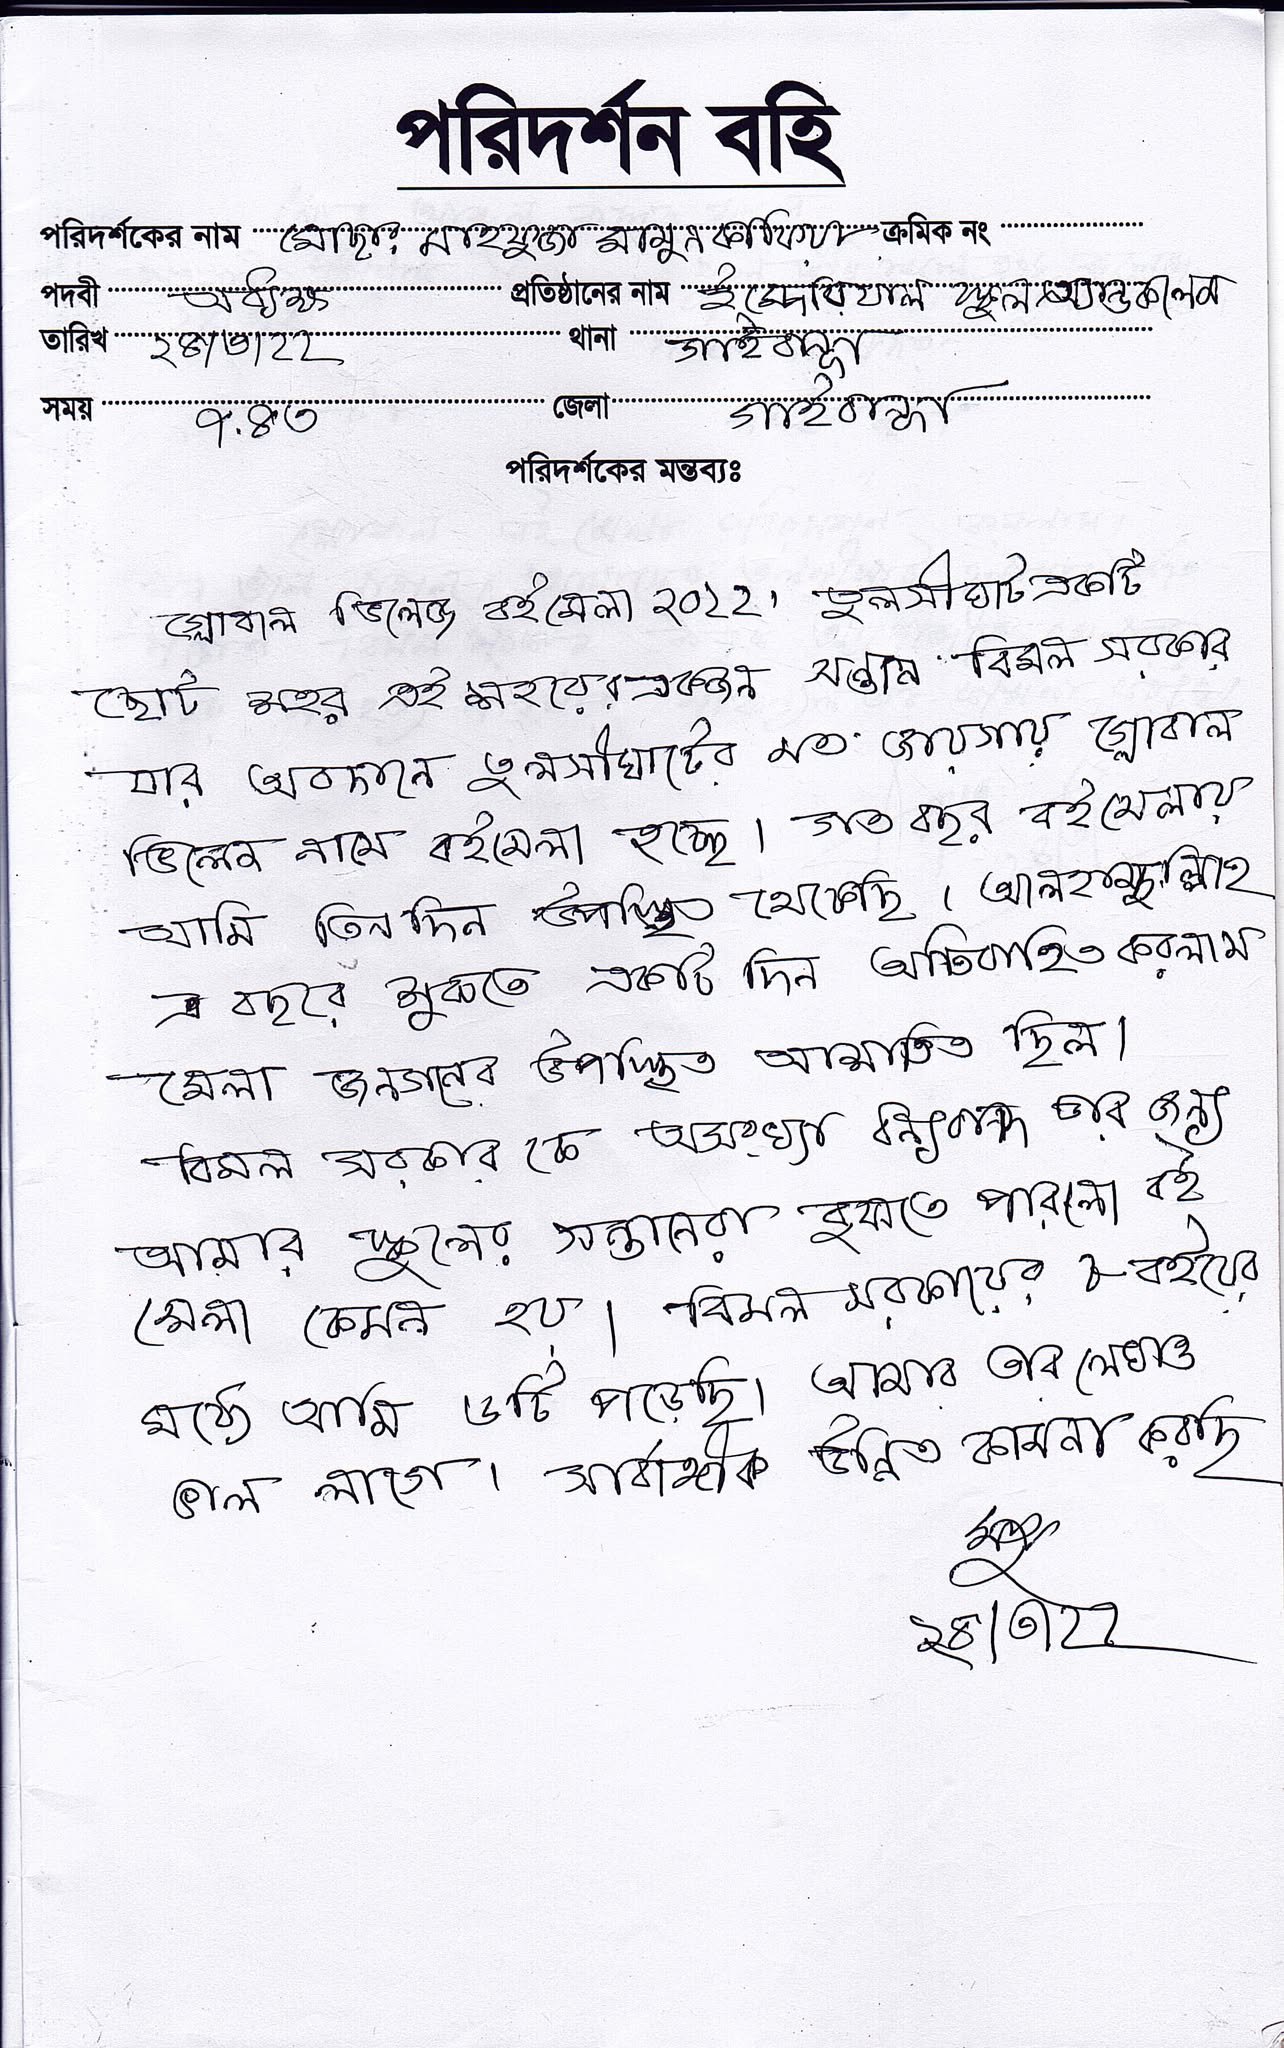 পরিদর্শন বহি
পরিদর্শকের নাম মোছাঃ মাহফুজা মামুন ক্রমিক নং
পদবী অধ্যক্ষ প্রতিষ্ঠানের নাম ইম্পেরিয়াল স্কুল অ্যান্ড কলেজ
তারিখ ২৪/৩/২২ থানা গাইবান্ধা
সময় ৭.৪৩ জেলা গাইবান্ধা
পরিদর্শকের মন্তব্যঃ
গ্লোবাল ভিলেজ বইমেলা ২০২২। তুলসীঘাট একটি
ছোট শহর এই শহরের একজন সন্তান বিমল সরকার
যার অবদানে তুলসীঘাটের মত জায়গায় গ্লোবাল
ভিলেজ নামে বইমেলা হচ্ছে। গত বছর বইমেলায়
আমি তিনদিন উপস্থিত থেকেছি। আলহামদুলিল্লাহ
এ বছরে একটি দিন অতিবাহিত করলাম
মেলা জনগনের উপস্থিত আশাতিত ছিল।
বিমল সরকার কে অসংখ্যা ধন্যবাদ তার জন্য
আমার স্কুলের সন্তানেরা বুঝতে পারলো বই
মেলা কেমন হয়। বিমল সরকারের ৮ বইয়ের
মধ্যে আমি ৬টি পড়েছি। আমার তার লেখাও
ভাল লাগে। সার্বাঙ্গীক উন্নিত কামনা করছি
২৪/৩/২২